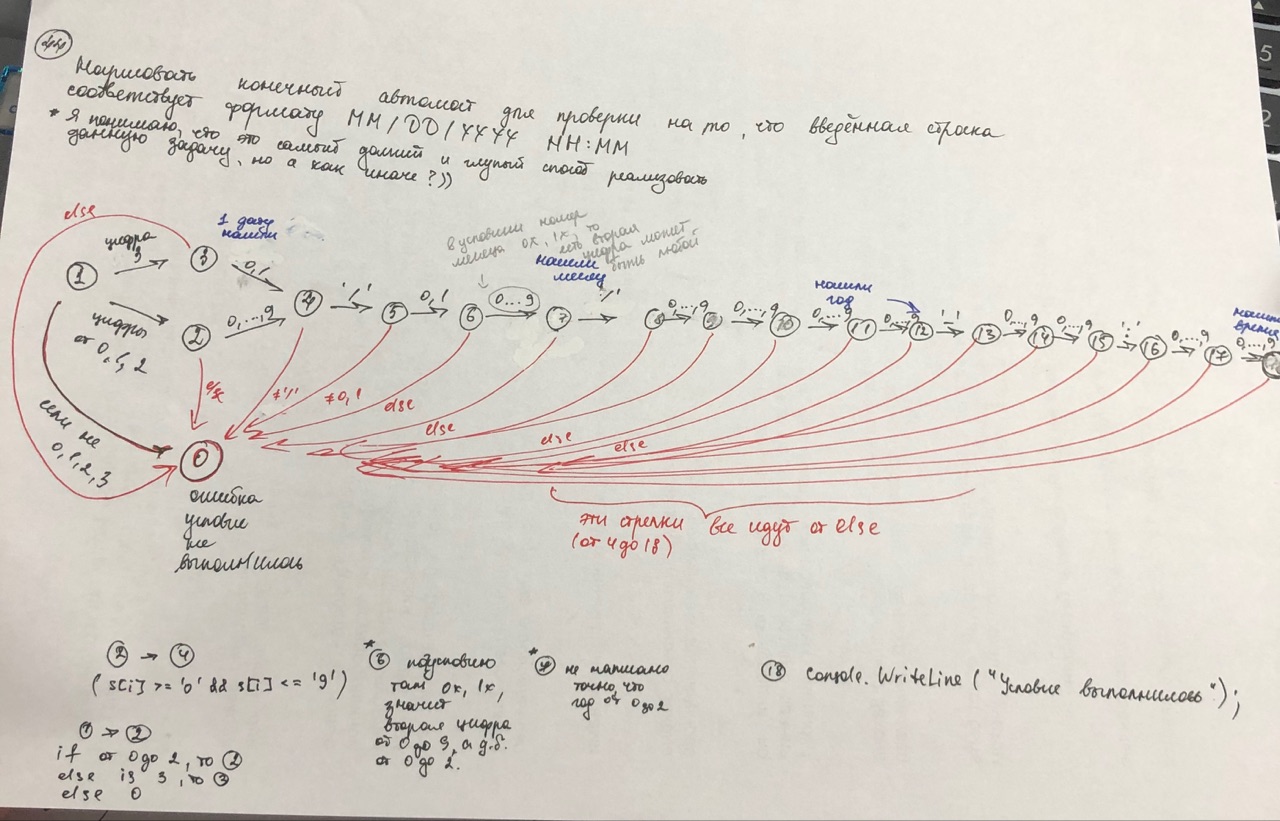 44
Нарисовать конечный автомат для проверки на то, что введённая строка
соответствует формату MM/DD/YYYY HH:MM
* Я понимаю, что это самый долгий и глупый способ реализовать
данную задачу, но а как иначе?))
else
1 дату
нашли
в условии номер
месяца 0x, 1x, то
есть вторая
цифра может
быть любой
нашли
месяц
нашли
год
нашли
время
1 цифра 3 3 0,1 4 '/' 5 0,1 6 0...9 7 '/' 8 0,...,9 9 0,...,9 10 0,...,9 11 0,...,9 12 ' ' 13 0,...,9 14 0,...,9 15 ':' 16 0,...,9 17 0,...,9
цифры
от 0, 1, 2
2 0,...,9
else
≠'/'
≠0,1
else
else
else
else
если не
0, 1, 2, 3
0
ошибка
условие
не
выполнилось
эти стрелки все идут от else
(от 4 до 18)
2 → 4
(s[i] >= '0' && s[i] <= '9')
1 → 2
if от 0 до 2, то 2
else is 3, то 3
else 0
* 6 по условию
там 0x, 1x,
значит
вторая цифра
от 0 до 9, а д.б.
от 0 до 2.
* 7 не написано
точно, что
год от 0 до 2
18 Console.WriteLine("Условие выполнилось");
5
2